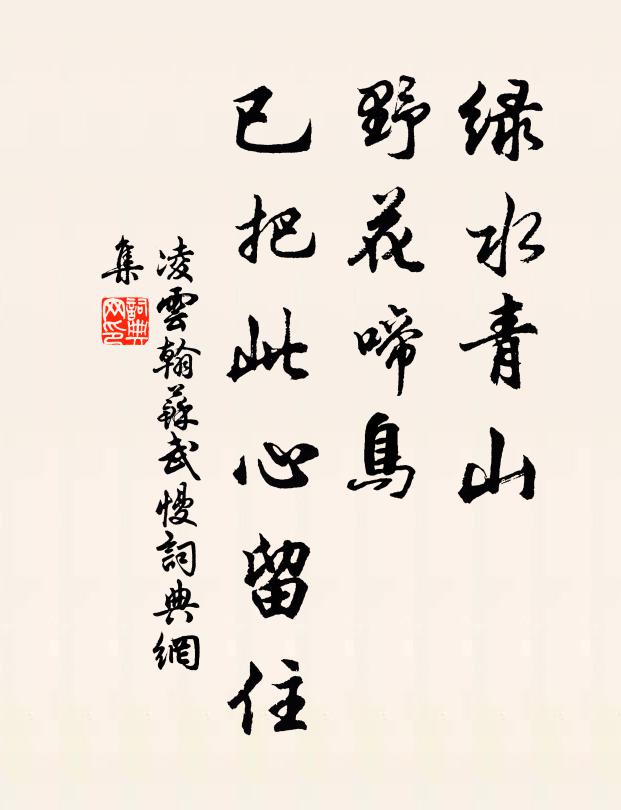 绿水青山
野花啼鳥
已把此心留住
凌雲翰蘇武慢詞典網
集
詞典
网印